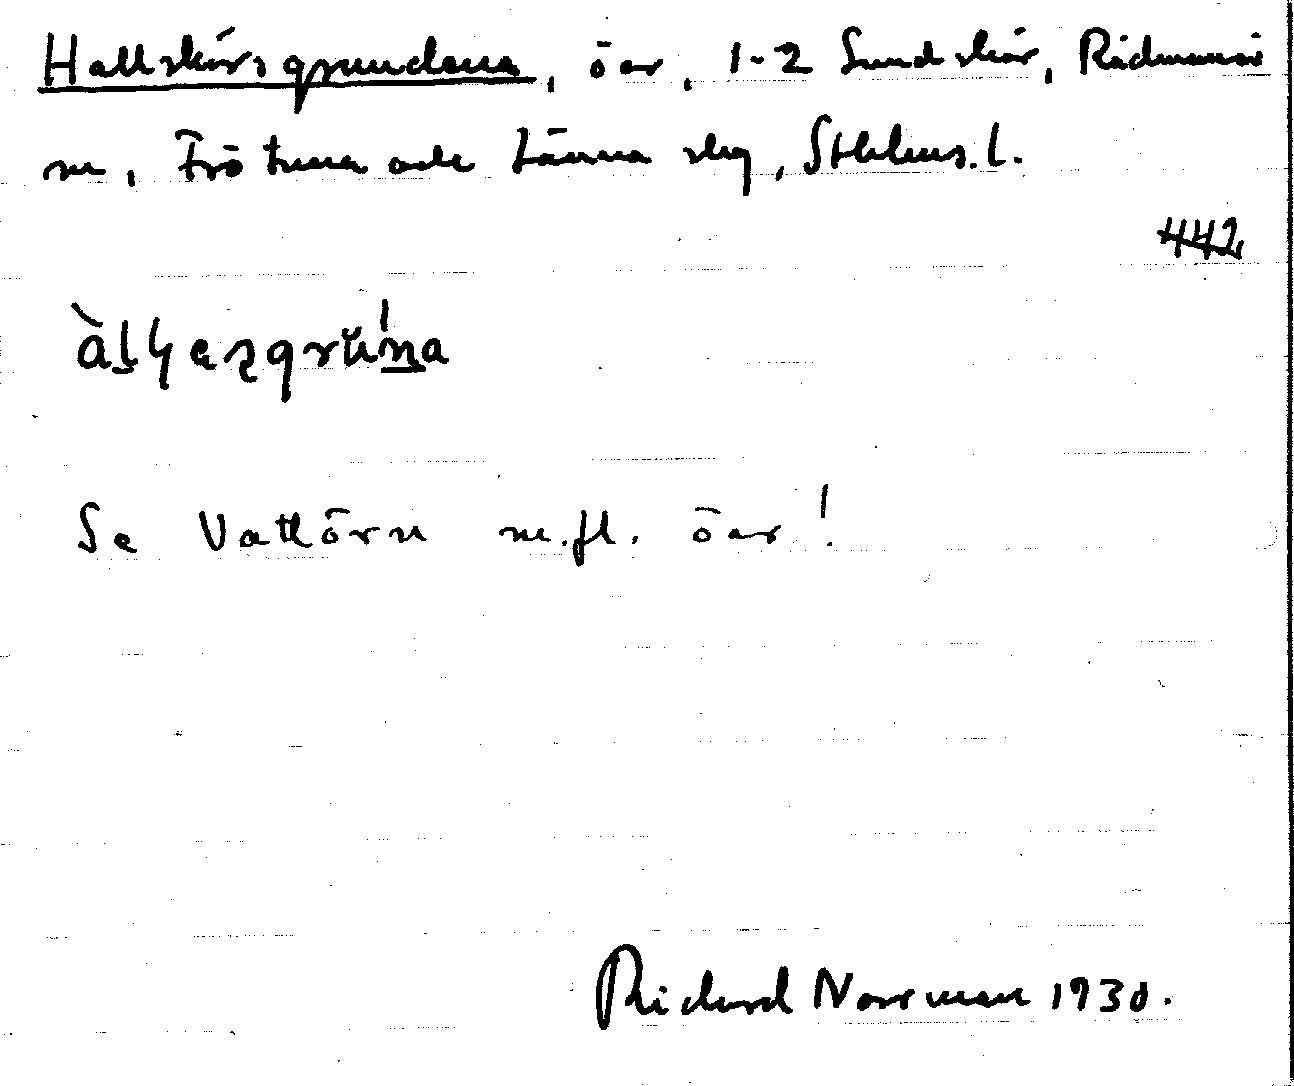 Hallskärsgrundena, öar, 1-2 Sundskär, Rådmansö
sn, Frötuna och Länna slg, Sthlms. l.
442
Se Vattörn m.fl. öar!
Richard Norrman 1930.